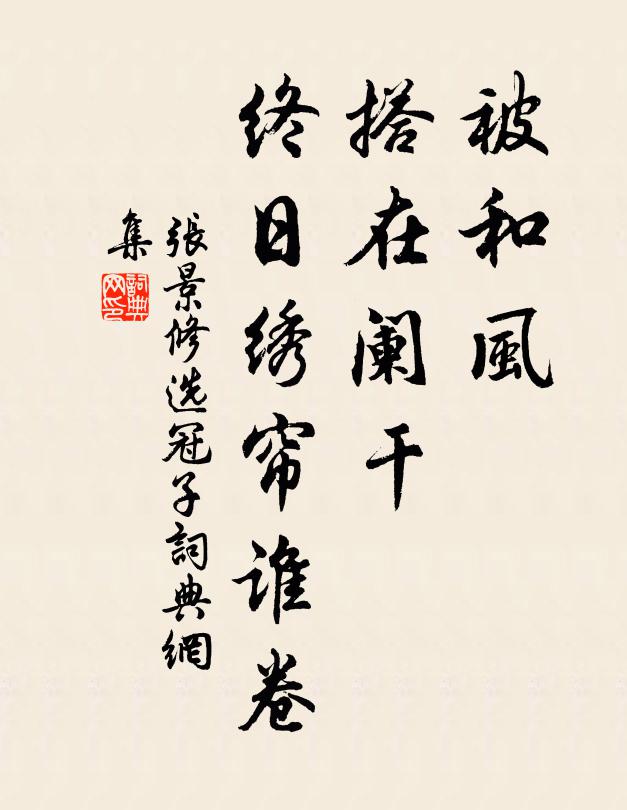 被和風
搭在阑干
终日绣帘谁卷
張景修选冠子詞典網
集
詞典
网印